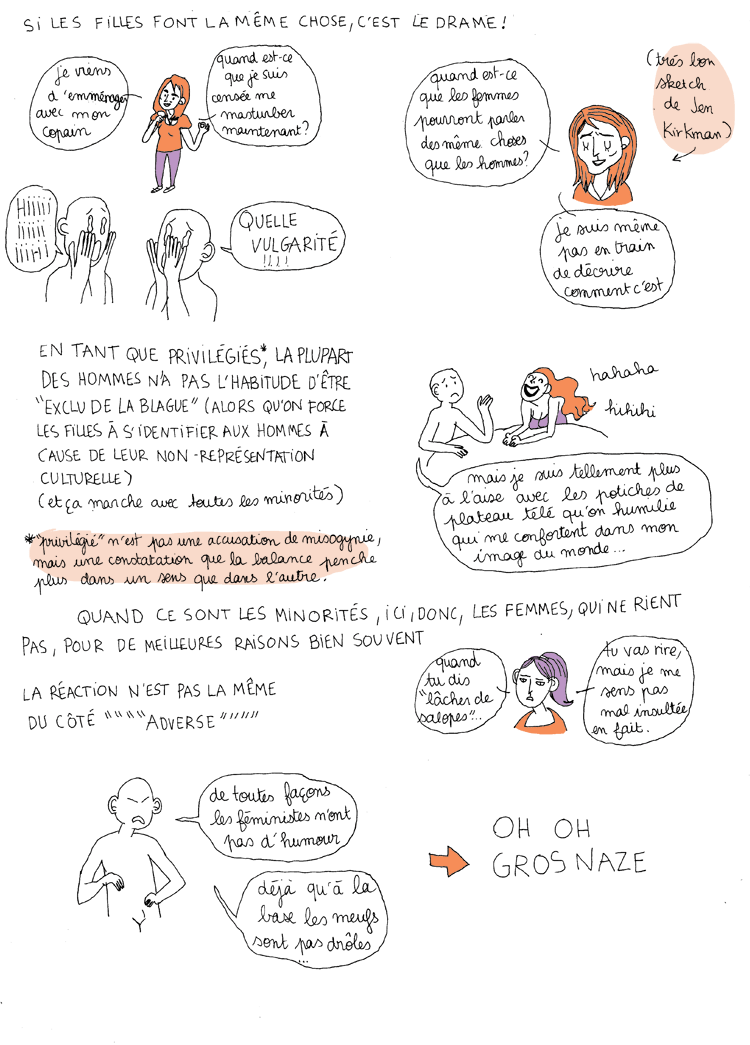 SI LES FILLES FONT LA MÊME CHOSE, C'EST LE DRAME!
je viens
d'emménager
avec mon
copain
quand est-ce
que je suis
censée me
masturber
maintenant?
quand est-ce
que les femmes
pourront parler
des même choses
que les hommes?
(trés bon
sketch
de Jen
Kirkman)
je suis même
pas en train
de décrire
comment c'est
Hiiiii
iiiiii
iiiHi
QUELLE
VULGARITÉ
!!!!
EN TANT QUE PRIVILÉGIÉS*, LA PLUPART
DES HOMMES N'A PAS L'HABITUDE D'ÊTRE
"EXCLU DE LA BLAGUE" (ALORS QU'ON FORCE
LES FILLES À S'IDENTIFIER AUX HOMMES À
CAUSE DE LEUR NON-REPRÉSENTATION
CULTURELLE)
(et ça marche avec toutes les minorités)
hahaha
hihihi
mais je suis tellement plus
à l'aise avec les potiches de
plateau télé qu'on humilie
qui me confortent dans mon
image du monde...
*"privilégié" n'est pas une accusation de misogynie,
mais une constatation que la balance penche
plus dans un sens que dans l'autre.
QUAND CE SONT LES MINORITÉS, ICI, DONC, LES FEMMES, QUI NE RIENT
PAS, POUR DE MEILLEURES RAISONS BIEN SOUVENT
LA RÉACTION N'EST PAS LA MÊME
DU CÔTÉ """"ADVERSE"""""
quand
tu dis
"lâcher de
salopes"...
tu vas rire,
mais je me
sens pas
mal insultée
en fait.
de toutes façons
les féministes n'ont
pas d'humour
déjà qu'à la
base les meufs
sont pas drôles
...
OH OH
GROS NAZE